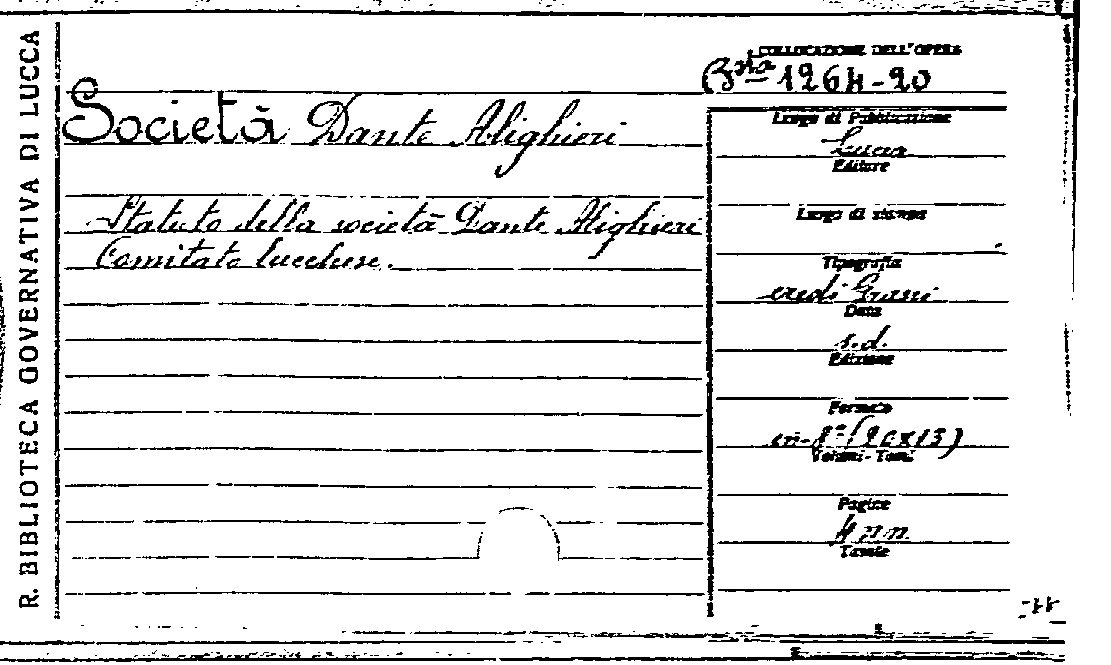 R. BIBLIOTECA GOVERNATIVA DI LUCCA
COLLOCAZIONE DELL'OPERA
Bsta 1264-20
Società Dante Alighieri
Statuto della società Dante Alighieri
Comitato lucchese.
Luogo di Pubblicazione
Lucca
Editore
Luogo di stampa
Tipografia
eredi Grassi
Data
s.d.
Edizione
Formato
in-8° (20x13)
Volumi - Tomi
Pagine
4 nn
Tavole